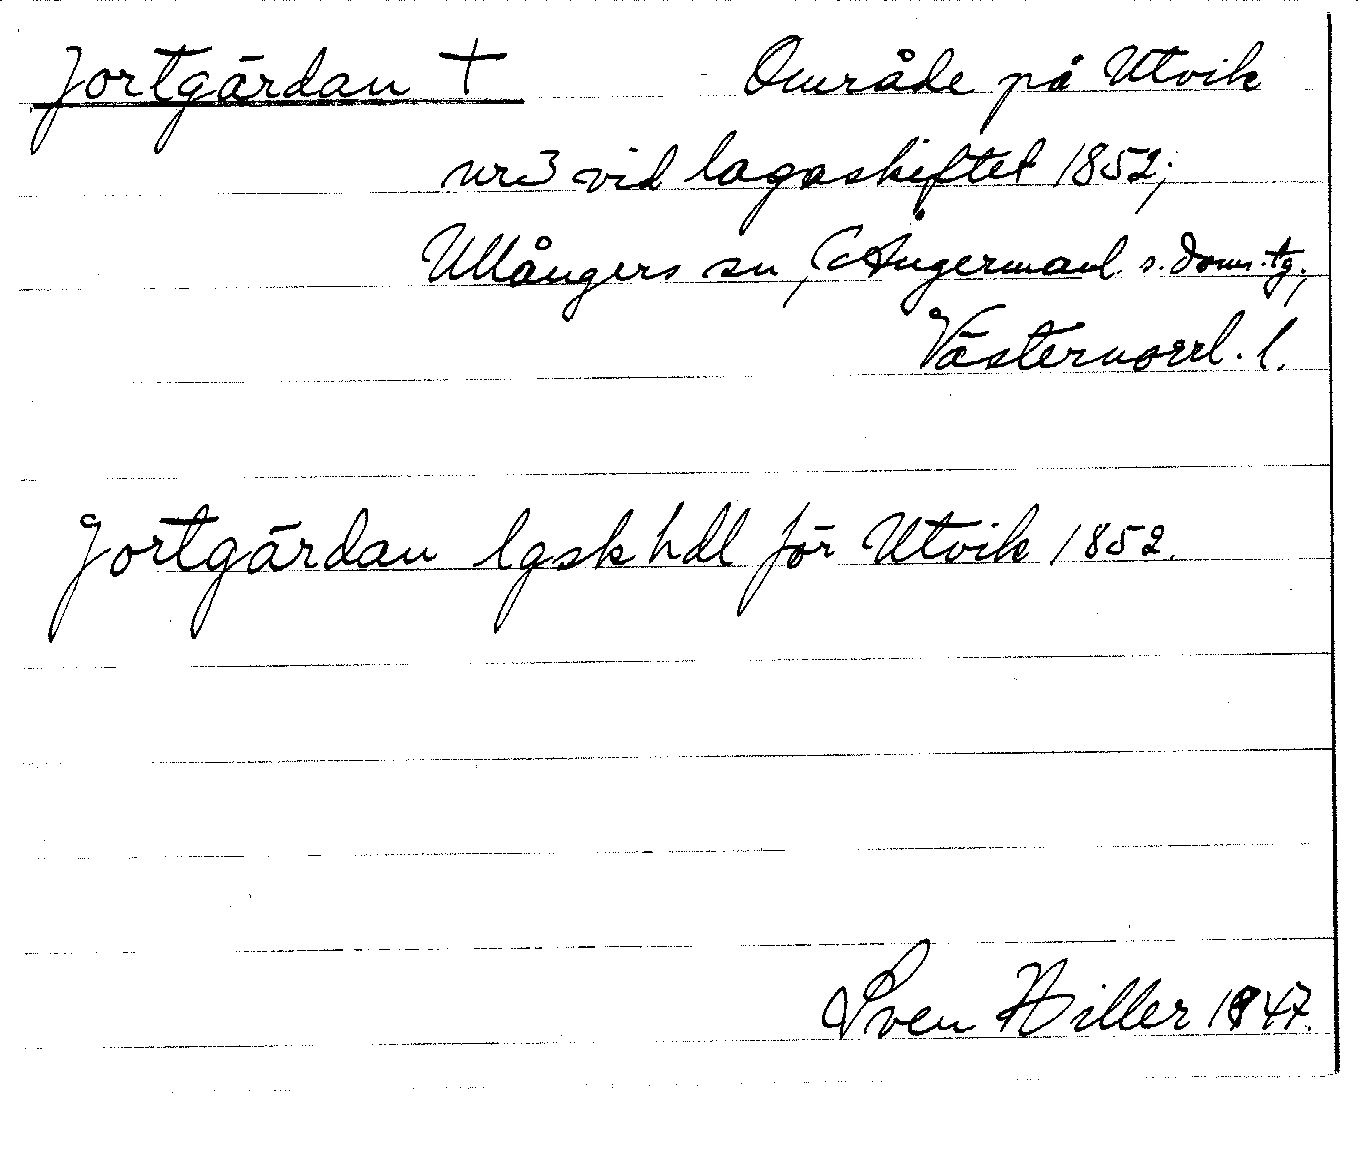 Jortgärdan †	Område på Utvik
nr3 vid lagaskiftet 1852;
Ullångers sn, Ångermanl. s. doms. tg.,
Västernorrl. l.
Jortgärdan lgsk hdl för Utvik 1852.
Sven Hiller 1947.